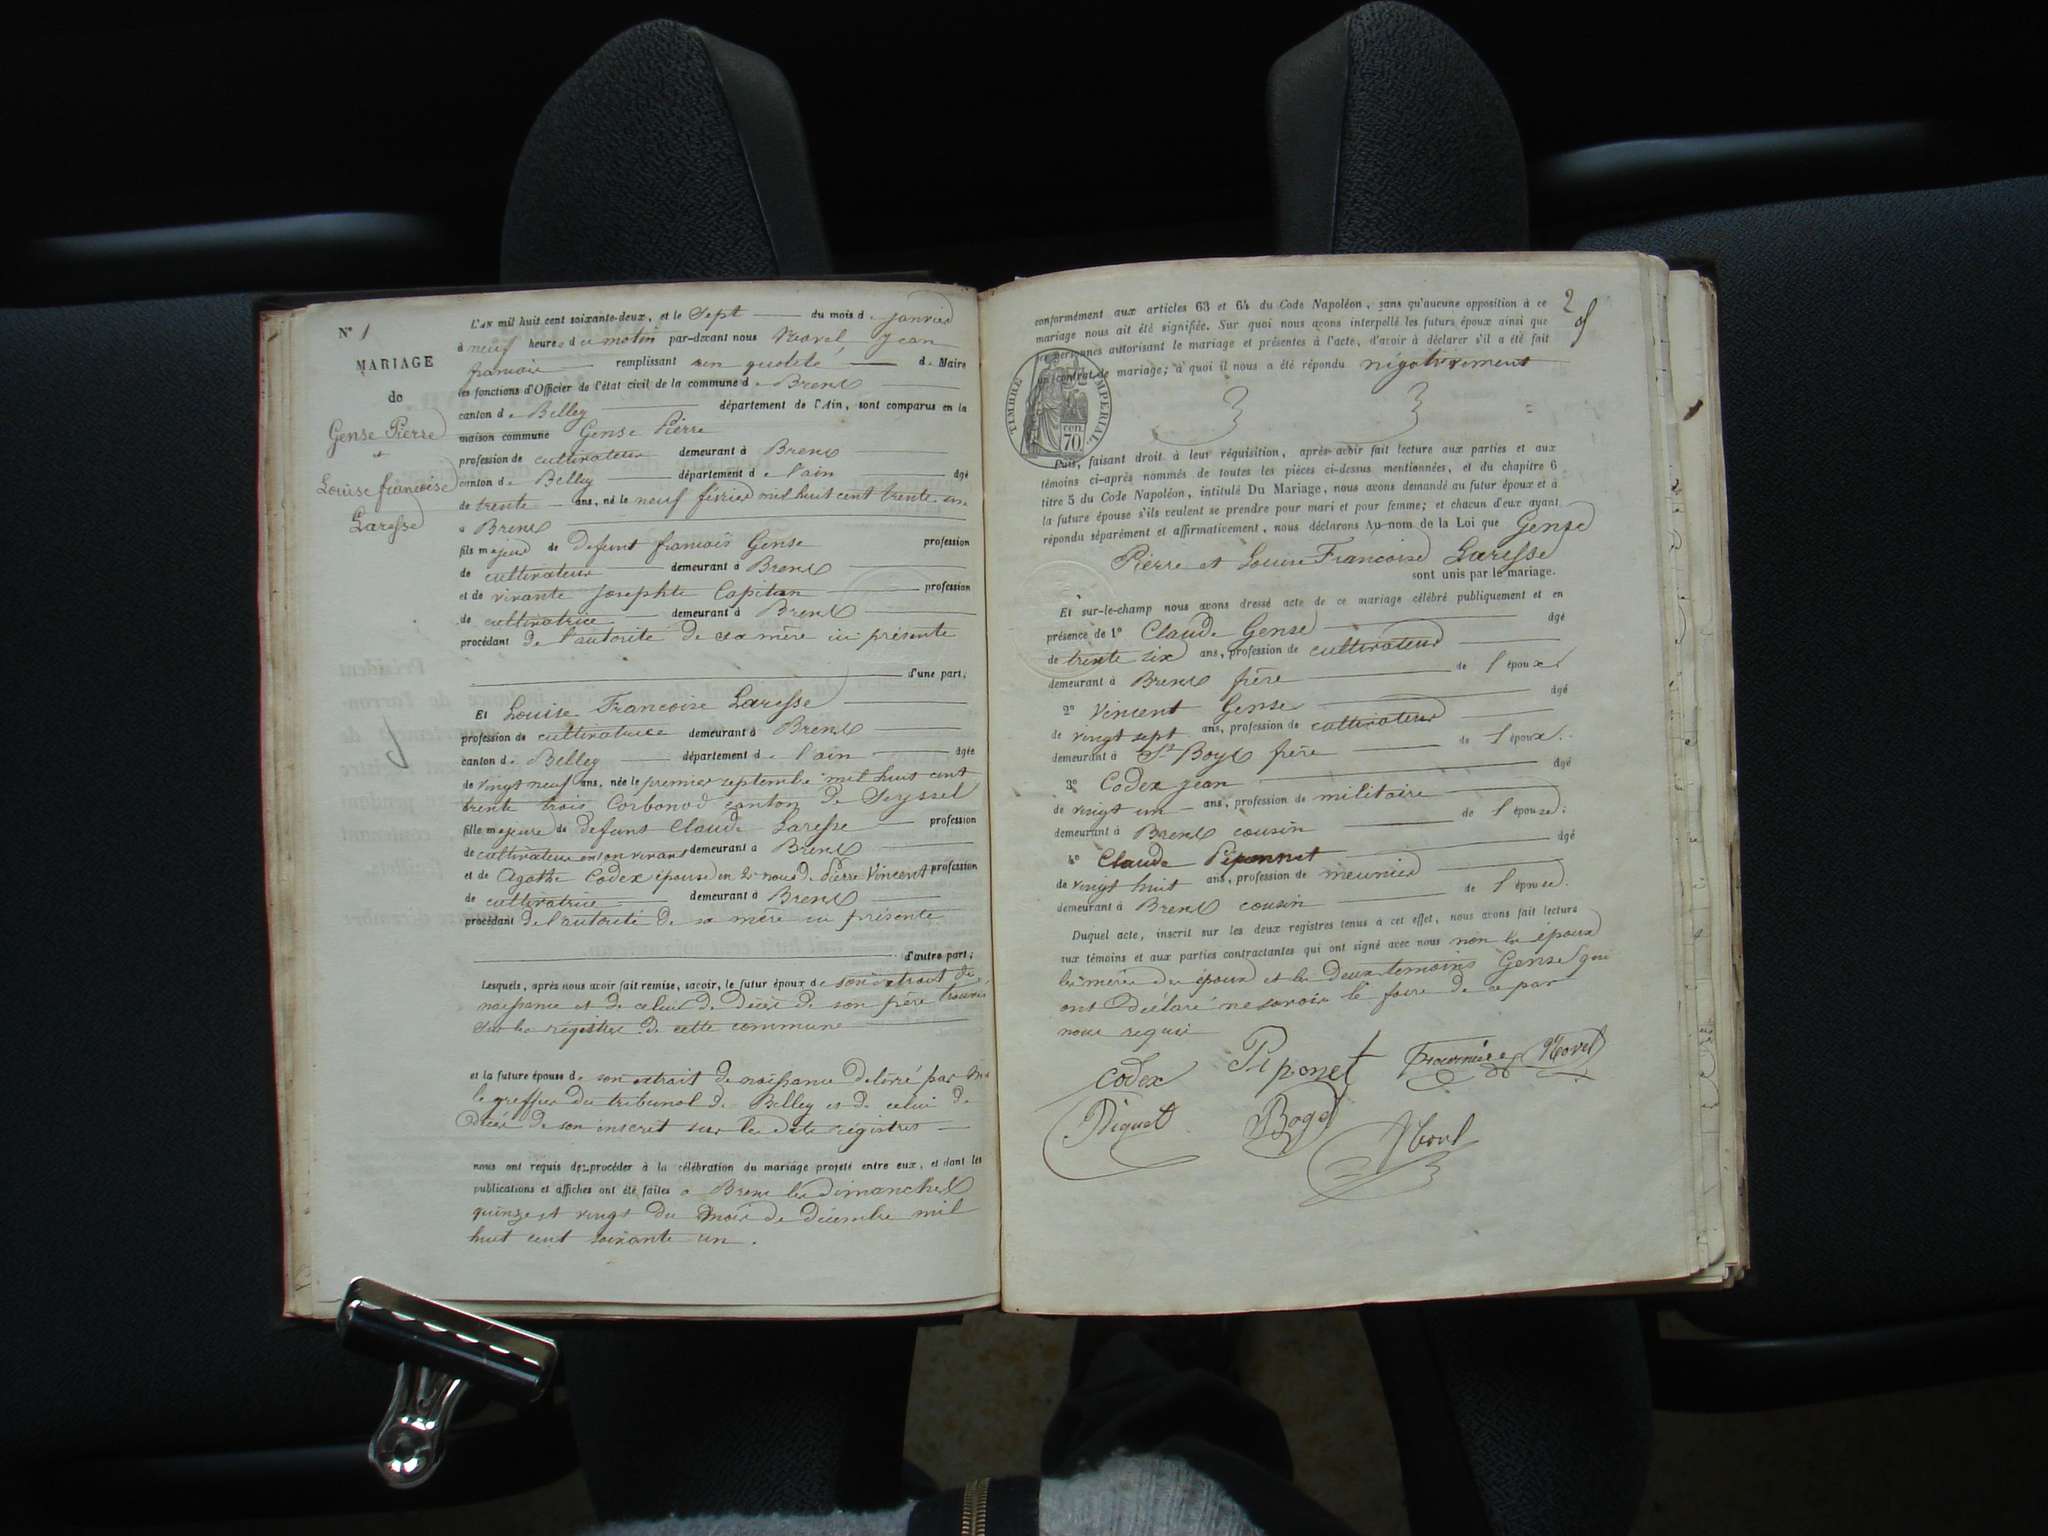 N° 1
MARIAGE
de
Gense Pierre
et
Louise francoise
Laresse
L'AN mil huit cent soixante-deux, et le Sept du mois de janvier
à neuf heures du matin par-devant nous jean
francois remplissant en qualité de Maire
les fonctions d'Officier de l'état civil de la commune de Brens
canton de Belley département de l'Ain, sont comparus en la
maison commune Gense Pierre
profession de cultivateur demeurant à Brens
canton de Belley département de l'ain âgé
de trente ans, né le neuf février mil huit cent trente un
à Brens
fils majeur de defunt francois Gense profession
de cultivateur demeurant à Brens
et de vivante josephte Capitan profession
de cultivatrice demeurant à Brens
procédant de l'autorité de sa mère ici présente
d'une part;
Et Louise Francoise Laresse
profession de cultivatrice demeurant à Brens
canton de Belley département de l'ain âgée
de vingt neuf ans, née le premier septembre mil huit cent
trente trois Corbonod canton de Seyssel
fille majeure de defunt Claude Laresse profession
de cultivateur en son vivant demeurant à Brens
et de Agathe Codex épouse en 2e noces de Pierre Vincent profession
de cultivatrice demeurant à Brens
procédant de l'autorité de sa mère ici présente
d'autre part;
Lesquels, après nous avoir fait remise, savoir, le futur époux de son extrait de
naissance et de celui de décès de son père trouvés
sur les régistres de cette commune
et la future épouse de son extrait de naissance délivré par
le greffier du tribunal de Belley et de celui de
décès de son inscrit sur les dits régistres
nous ont requis de procéder à la célébration du mariage projeté entre eux, et dont les
publications et affiches ont été faites à Brens les dimanches
quinze et vingt du mois de décembre mil
huit cent soixante un.
2
conformément aux articles 63 et 64 du Code Napoléon, sans qu'aucune opposition à ce
mariage nous ait été signifiée. Sur quoi nous avons interpellé les futurs époux ainsi que
les personnes autorisant le mariage et présentes à l'acte, d'avoir à déclarer s'il a été fait
un contrat de mariage; à quoi il nous a été répondu négativement
TIMBRE IMPERIAL
70 cen
Puis, faisant droit à leur réquisition, après avoir fait lecture aux parties et aux
témoins ci-après nommés de toutes les pièces ci-dessus mentionnées, et du chapitre 6
titre 5 du Code Napoléon, intitulé Du Mariage, nous avons demandé au futur époux et à
la future épouse s'ils veulent se prendre pour mari et pour femme; et chacun d'eux ayant
répondu séparément et affirmativement, nous déclarons Au nom de la Loi que Gense
Pierre et Louise Francoise Laresse
sont unis par le mariage.
Et sur-le-champ nous avons dressé acte de ce mariage célébré publiquement et en
présence de 1° Claude Gense âgé
de trente six ans, profession de cultivateur
demeurant à Brens frère de l'époux
2° Vincent Gense âgé
de vingt sept ans, profession de cultivateur
demeurant à St Boys frère de l'époux.
3° Codex jean âgé
de vingt un ans, profession de militaire
demeurant à Brens cousin de l'épouse.
4° Claude Piponnet âgé
de vingt huit ans, profession de meunier
demeurant à Brens cousin de l'épouse.
Duquel acte, inscrit sur les deux registres tenus à cet effet, nous avons fait lecture
aux témoins et aux parties contractantes qui ont signé avec nous non les époux
les mères des époux et les deux temoins Gense qui
ont déclaré ne savoir le faire de ce par
nous requis
codex Piponet